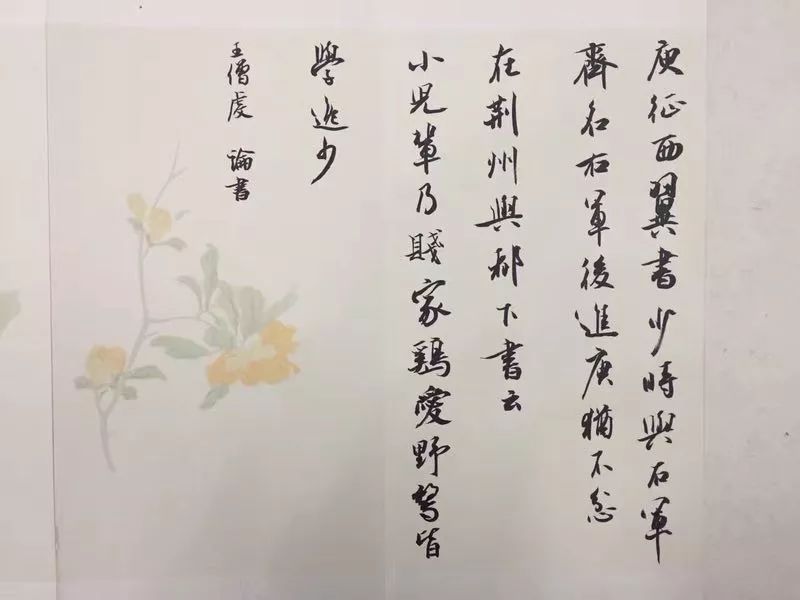 庾征西翼書少時與右軍
齊名右軍後進庾猶不忿
在荆州與都下書云
小兒輩乃賤家鷄愛野鶩皆
學逸少
王僧虔 論書